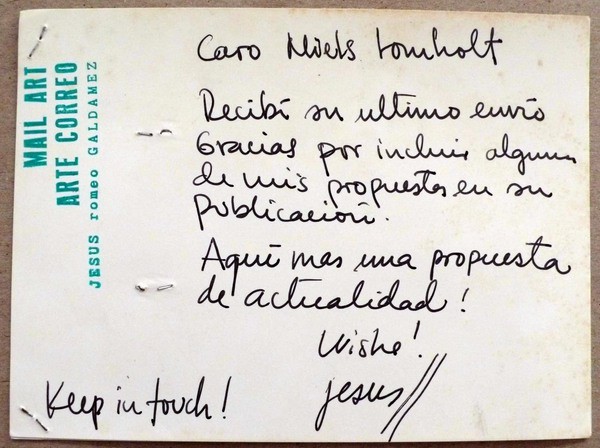 MAIL ART
ARTE CORREO
JESUS romeo GALDAMEZ
Caro Niels Lomholt
Recibí su ultimo envio
Gracias por incluir algunas
de mis propuestas en su
publicación.
Aquí mas una propuesta
de actualidad!
Wishe!
Jesus
Keep in touch!